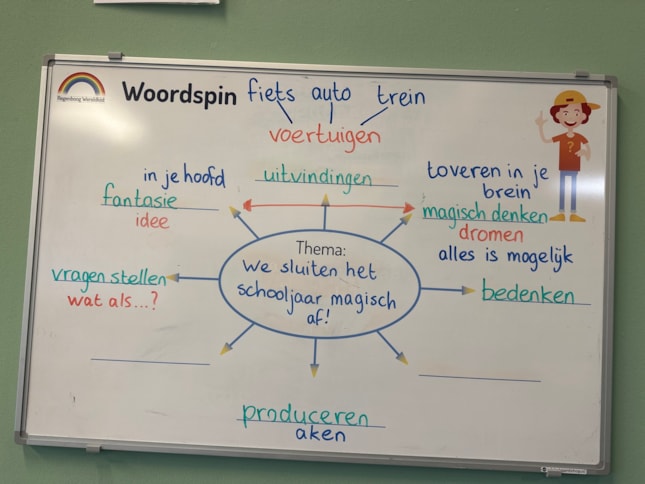 Regenboog Wereldkist
Woordspin fiets auto trein
voertuigen
in je hoofd
fantasie
idee
uitvindingen
toveren in je
brein
magisch denken
dromen
alles is mogelijk
Thema:
We sluiten het
schooljaar magisch
af!
vragen stellen
wat als...?
bedenken
produceren
aken
?